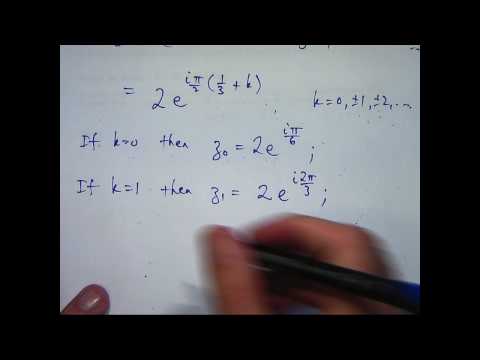 = 2e^{\frac{iπ}{2}(\frac{1}{3}+k)} k=0,±1,±2,...
If k=0 then z₀ = 2e^{\frac{iπ}{6}};
If k=1 then z₁ = 2e^{i\frac{2π}{3}};